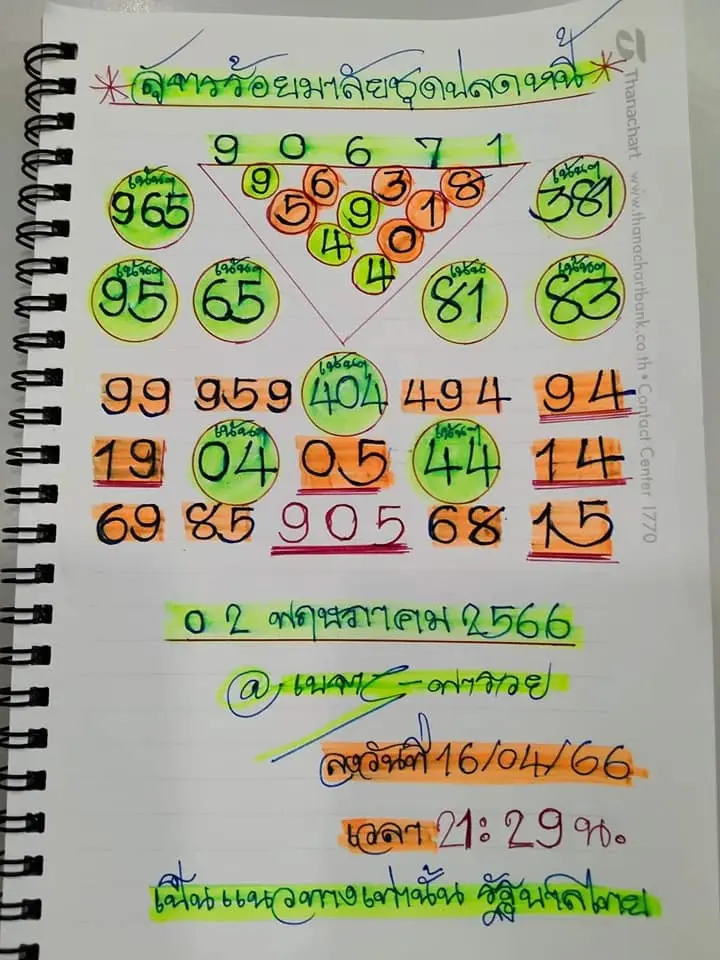 สูตรร้อยมาลัยชุดปลดหนี้
9 0 6 7 1
9 6 3 8
5 9 1
4 0
4
เน้นๆ
965
เน้นๆ
381
เน้นๆ
95
เน้นๆ
65
เน้น
81
เน้นๆ
83
99 959
เน้นๆ
404
494 94
19
เน้นๆ
04
05
เน้นๆ
44
14
69 85 905 68 15
02 พฤษภาคม 2566
@
พารวย
ลงวันที่ 16/04/66
เวลา 21:29 น.
เป็นแนวทางเท่านั้น รัฐบาลไทย
Thanachart www.thanachartbank.co.th • Contact Center 1770